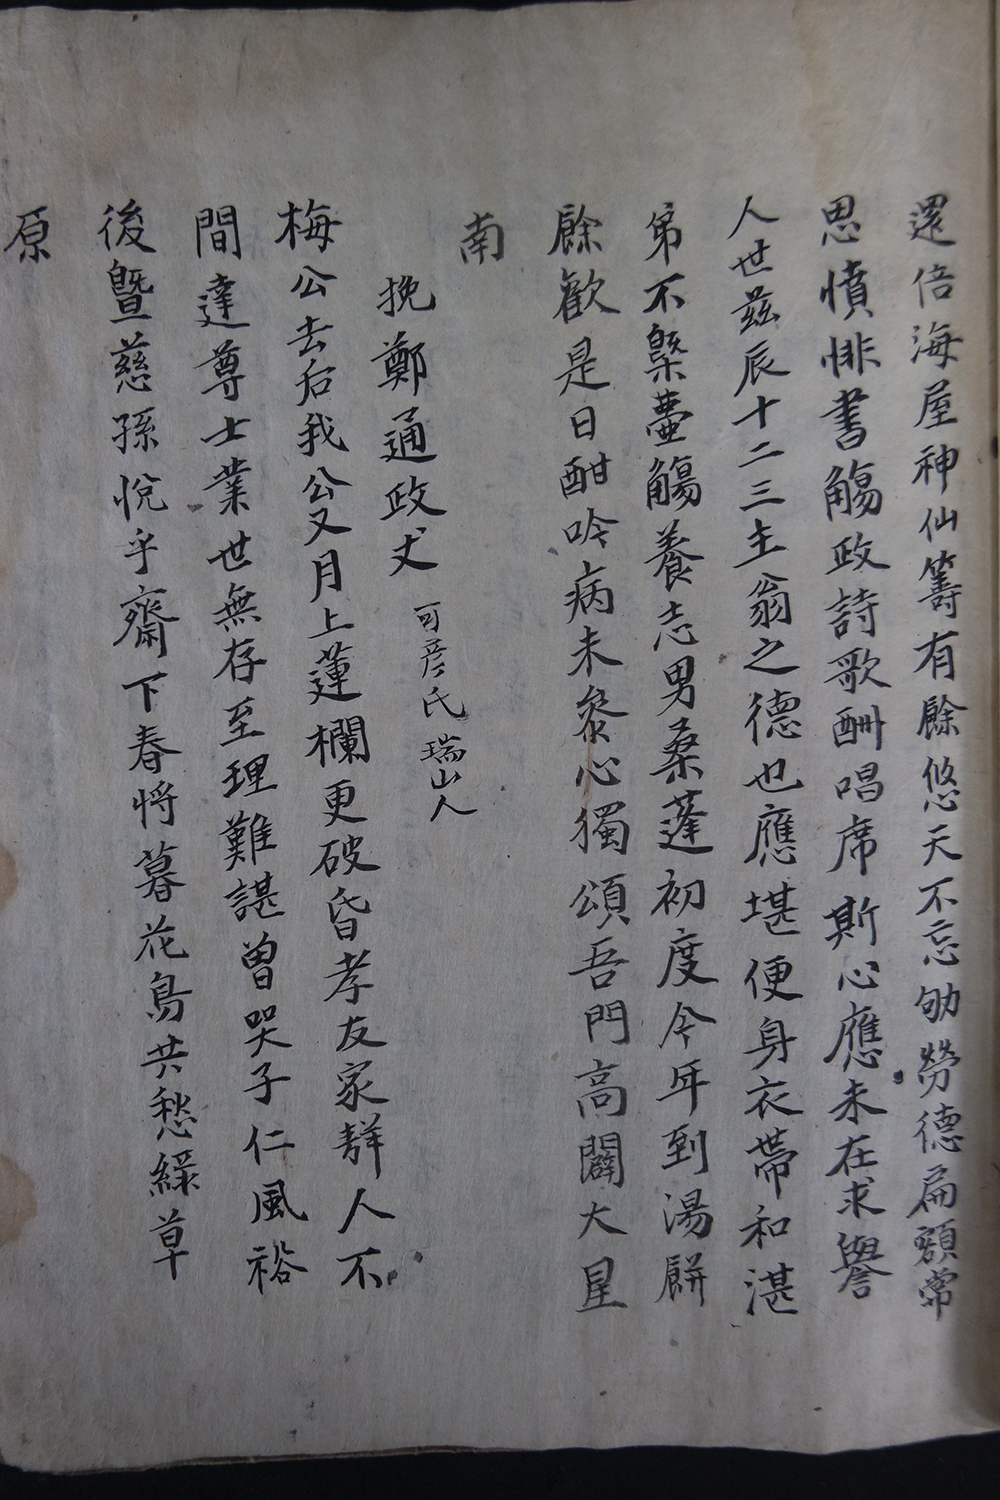 還倍海屋神仙籌有餘悠天不忘劬勞德扁額常
思憤悱書觴政詩歌酬唱席斯心應未在求譽
人世玆辰十二三主翁之德也應堪便身衣帶和湛
弟不槩壷觴養志男桑蓬初度今年到湯餅
餘歡是日酣吟病未叅心獨頌吾門高闢大星
南
挽鄭通政丈 可彦氏瑞山人
梅公去后我公又月上蓮欄更破昏孝友家難人不
間達尊士業世無存至理難諶曾哭子仁風裕
後曁慈孫悅乎齋下春將暮花鳥共愁綠草
原